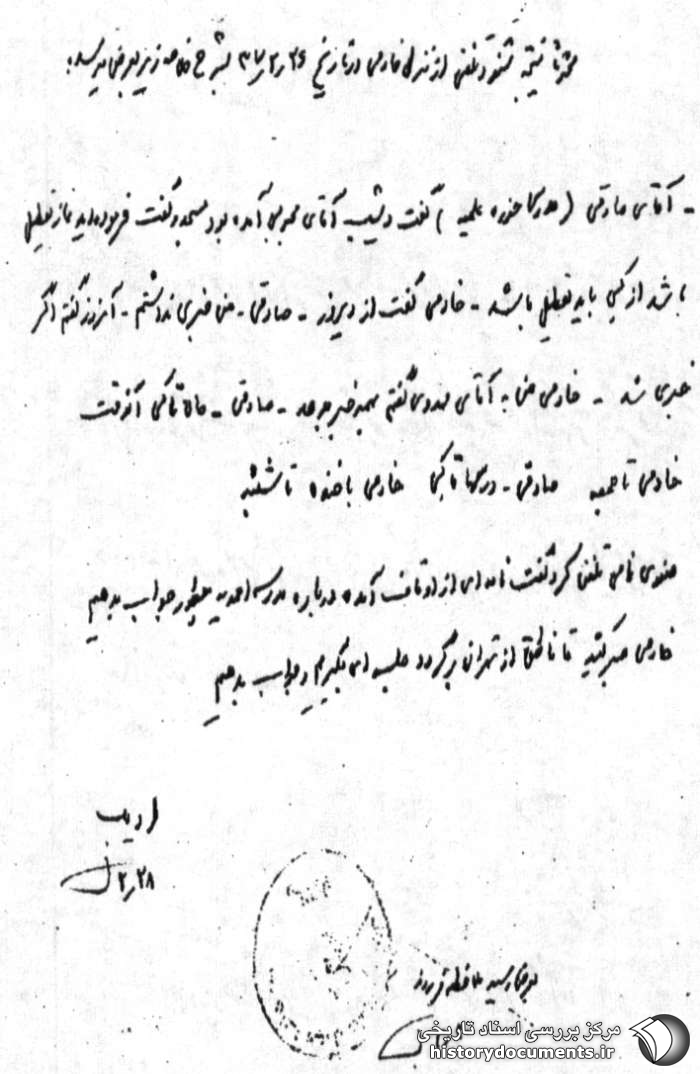 محترماً نتیجه شنود تلفنی از منزل خادمی در تاریخ ۳۷/۲/۲۶ بشرح خلاصه زیر بعرض میرسد:
- آقای صادقی (مدرس حوزه علمیه) گفت دیشب آقای آمده بود مسجد و گفت فرموده‌اید نماز تعطیل
باشد از کی باید تعطیل باشد - خادمی گفت از دیروز - صادقی - من خبری نداشتم - آنروز گفتم اگر
خبری شد - خادمی من به آقای مهدوی گفتم بهمه خبر بدهد - صادقی - حالا تا کی آنوقت
خادمی تا جمعه صادقی - درسها تا کی خادمی با خنده تا شنبه
تلفن کرد و گفت نامه‌ای از اوقاف آمده درباره مدرسه احمدیه چطور جواب بدهیم
خادمی صبر کنید تا از تهران برگردد جلسه‌ای بگیریم و جواب بدهیم
۲/۲۸
بعرض رسید ملاحظه فرمودند
مرکز بررسی اسناد تاریخی
historydocuments.ir